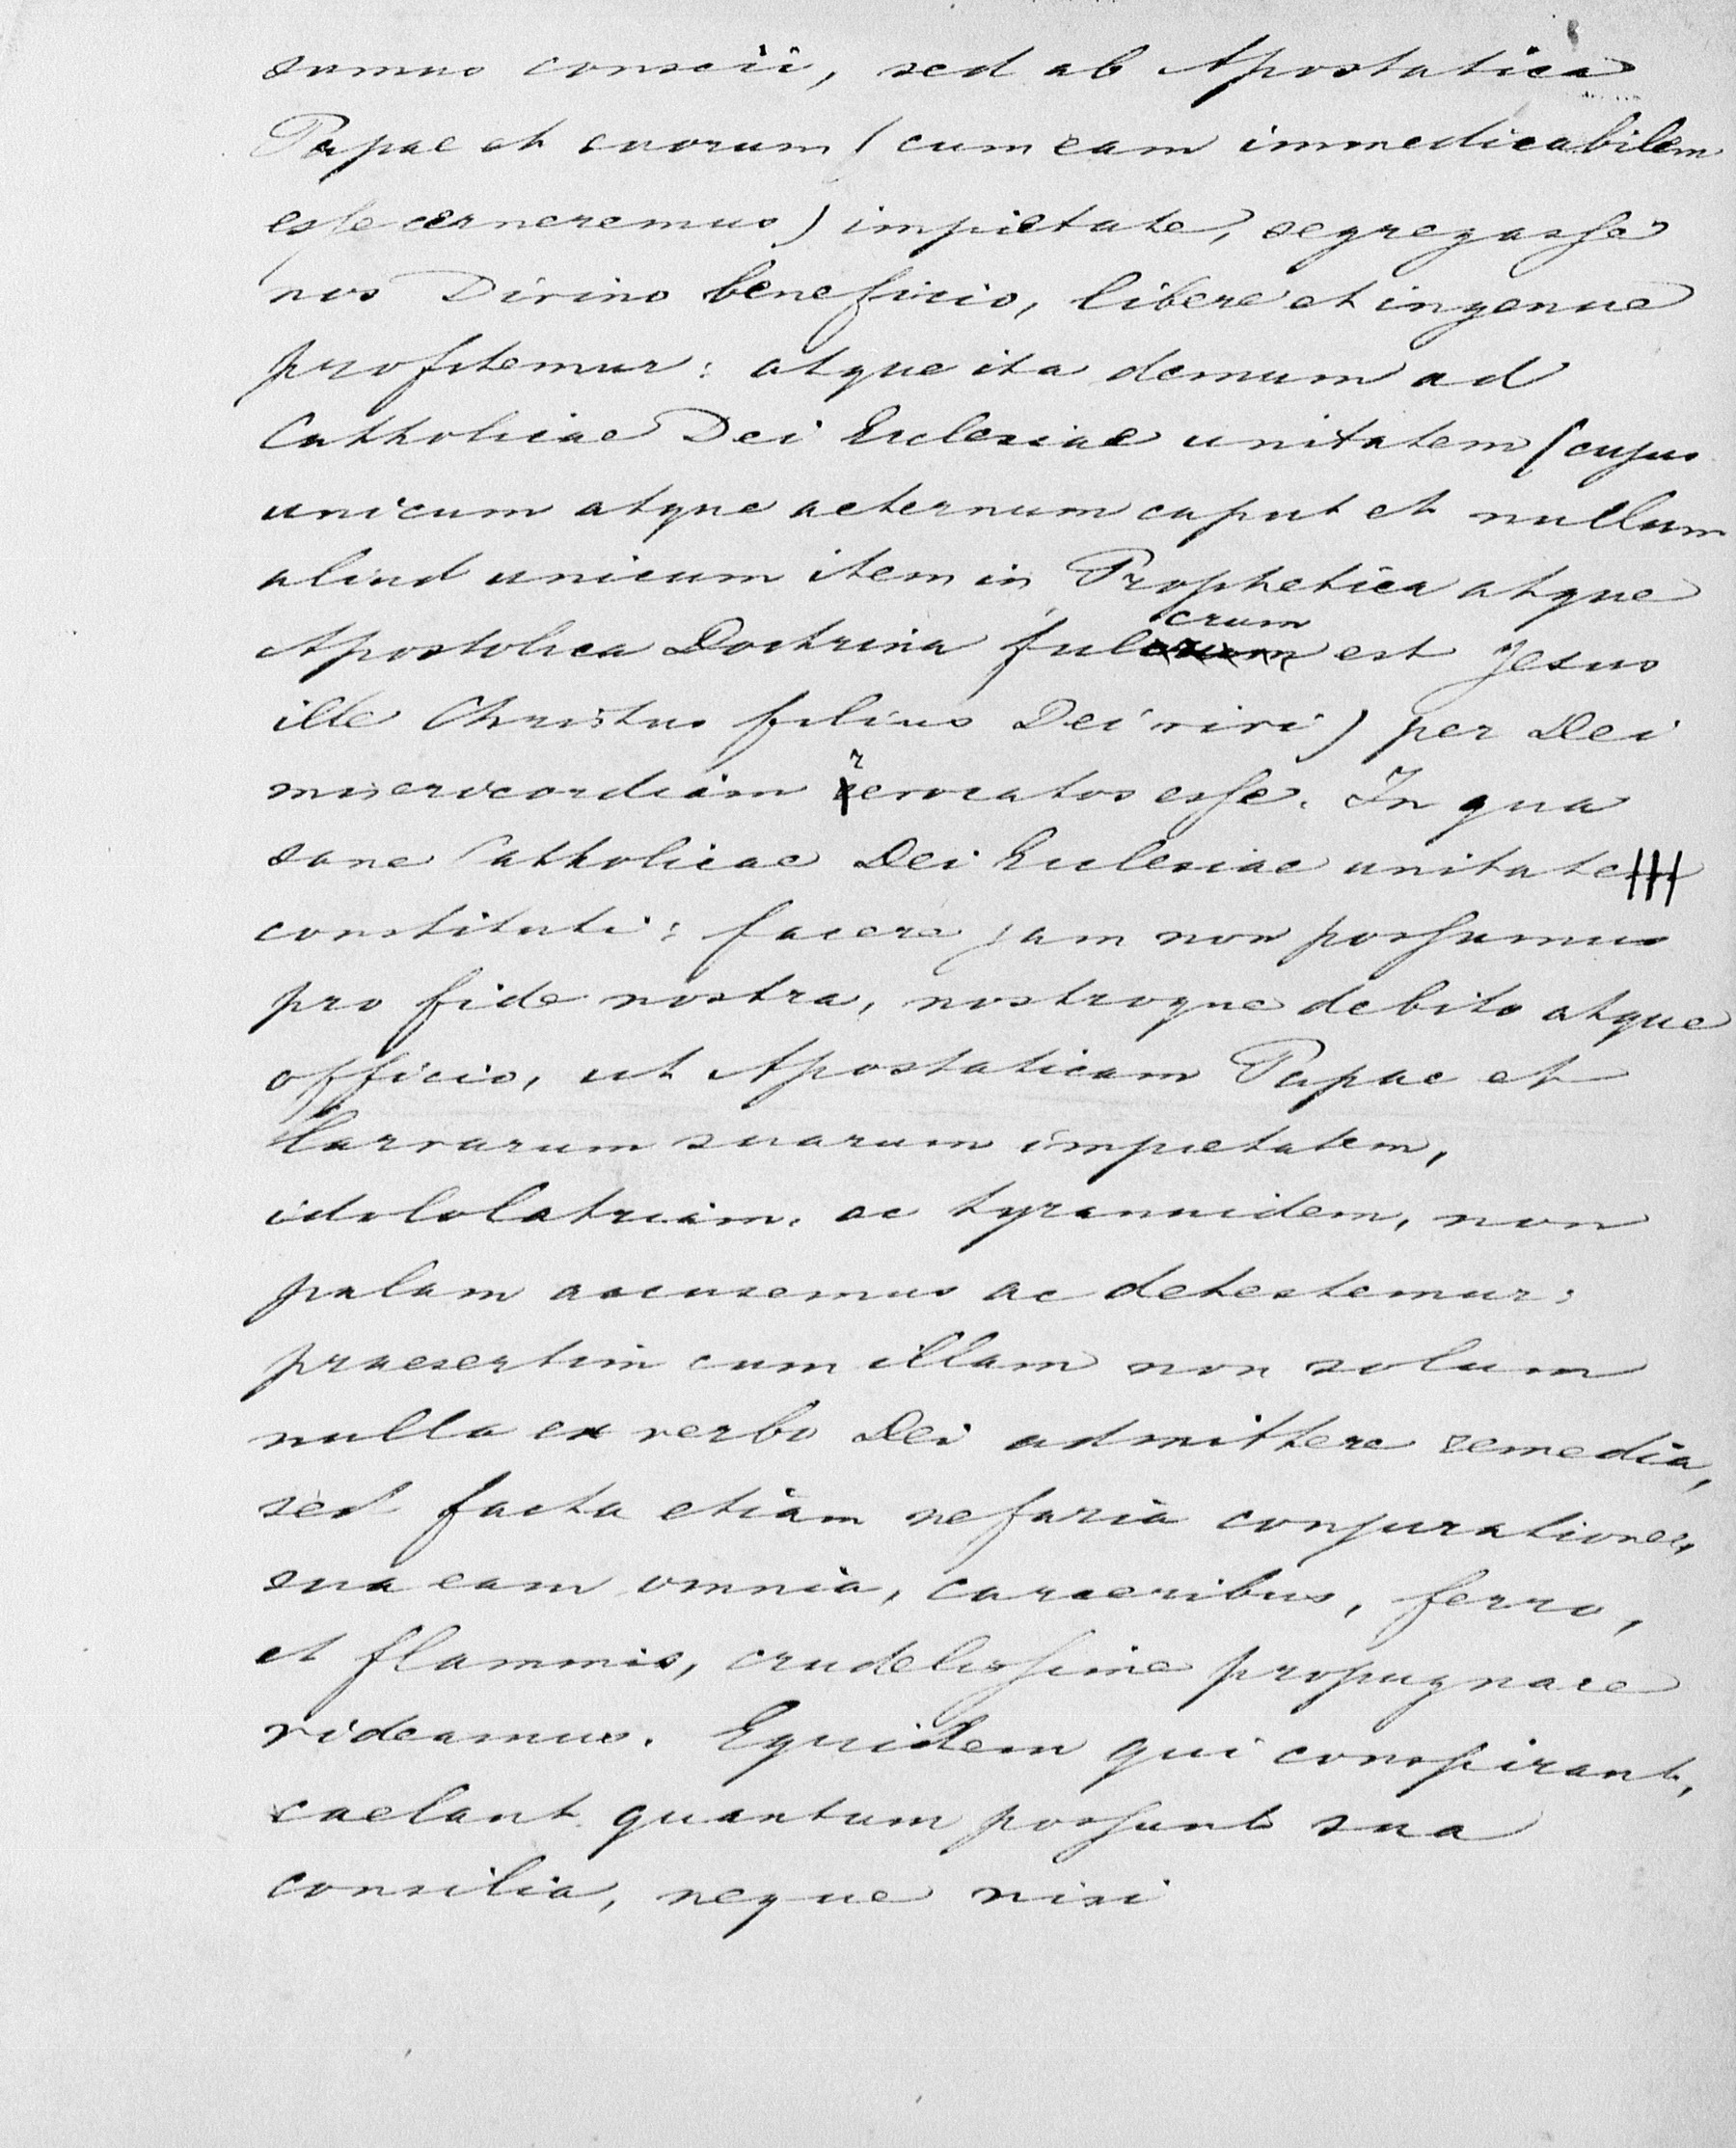 sumus conscii, sed ab Apostatica
Papae et suorum (cum eam immedicabilem
esse cerneremus) impietate, segregasse
nos Divino beneficio, libere et ingenue
profitemur: atque ita demum ad
Catholicae Dei Ecclesiae unitatem (cujus
unicum atque aeternum caput et nullum
aliud unicum item in Prophetica atque
Apostolica Doctrina fulcrum est Jesus
ille Christus filius Dei vivi) per Dei
misericordiam revocatos esse. In qua
sane Catholicae Dei Ecclesiae unitate
constituti: facere jam non possumus
pro fide nostra, nostroque debito atque
officio, ut Apostaticam Papae et
Larvarum suarum impietatem,
idololatriam, ac tyrannidem, non
palam accusemus ac detestemur:
praesertim cum illam non solum
nulla ex verbo Dei admittere remedia,
sed facta etiam nefaria conjuratione,
sua eam omnia, carceribus, ferro,
et flammis, crudelissime propugnare
videamus. Equidem qui conspirant,
caelant quantum possunt sua
consilia, neque nisi